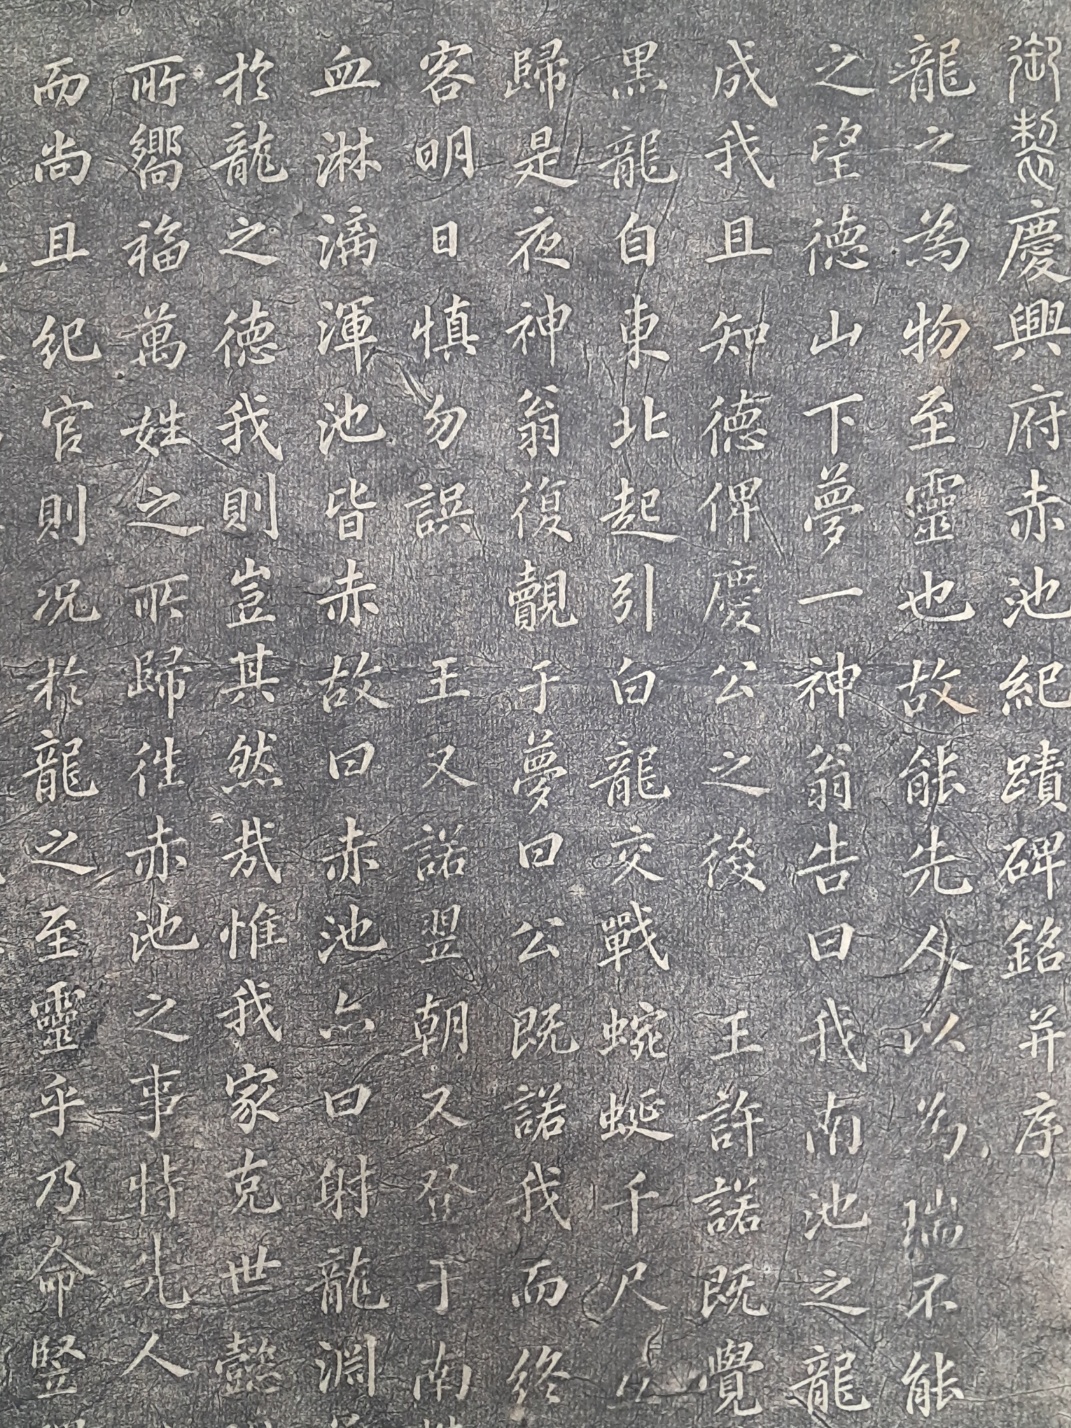 御製慶興府赤池紀蹟碑銘并序
龍之為物至靈也故能先人以為瑞不能
之望德山下夢一神翁告曰我南池之龍
成我且知德俾慶公之後 王許諾既覺
黑龍自東北起引白龍交戰蜿蜒千尺
歸是夜神翁復覿于夢曰公既諾我而終
客明日慎勿誤 王又諾翌朝又登于南
血淋漓渾池皆赤故曰赤池亦曰射龍淵
於龍之德我則豈其然哉惟我家克世懿
所嚮福萬姓之所歸往赤池之事特先人
而尚且紀官則況於龍之至靈乎乃命竪